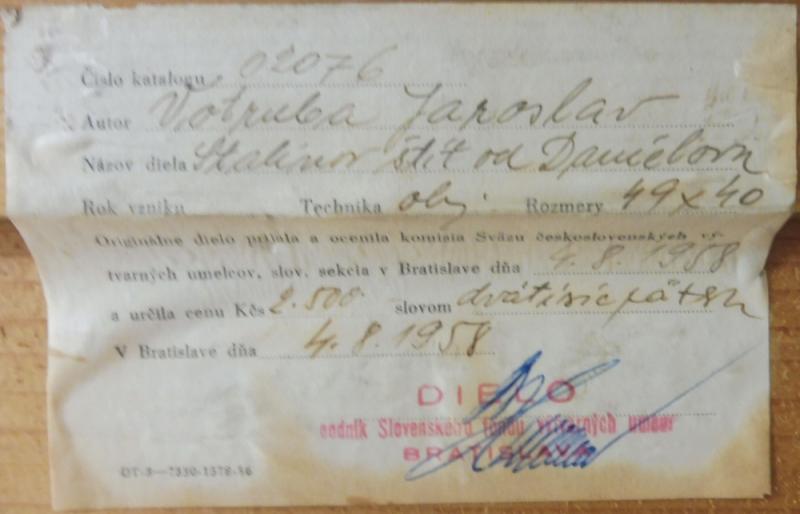 Číslo katalogu 02076
Autor Votruba Jaroslav
Názov diela Stalinov štít od Daniélova
Rok vzniku Technika olej Rozmery 49x40
Originálne dielo prijala a ocenila komisia Sväzu československých vý-
tvarných umelcov, slov. sekcia v Bratislave dňa 4.8.1958
a určila cenu Kčs 2.500 slovom dvatisícpäťsto
V Bratislave dňa 4.8.1958
DIELO
podnik Slovenského fondu výtvarných umení
BRATISLAVA